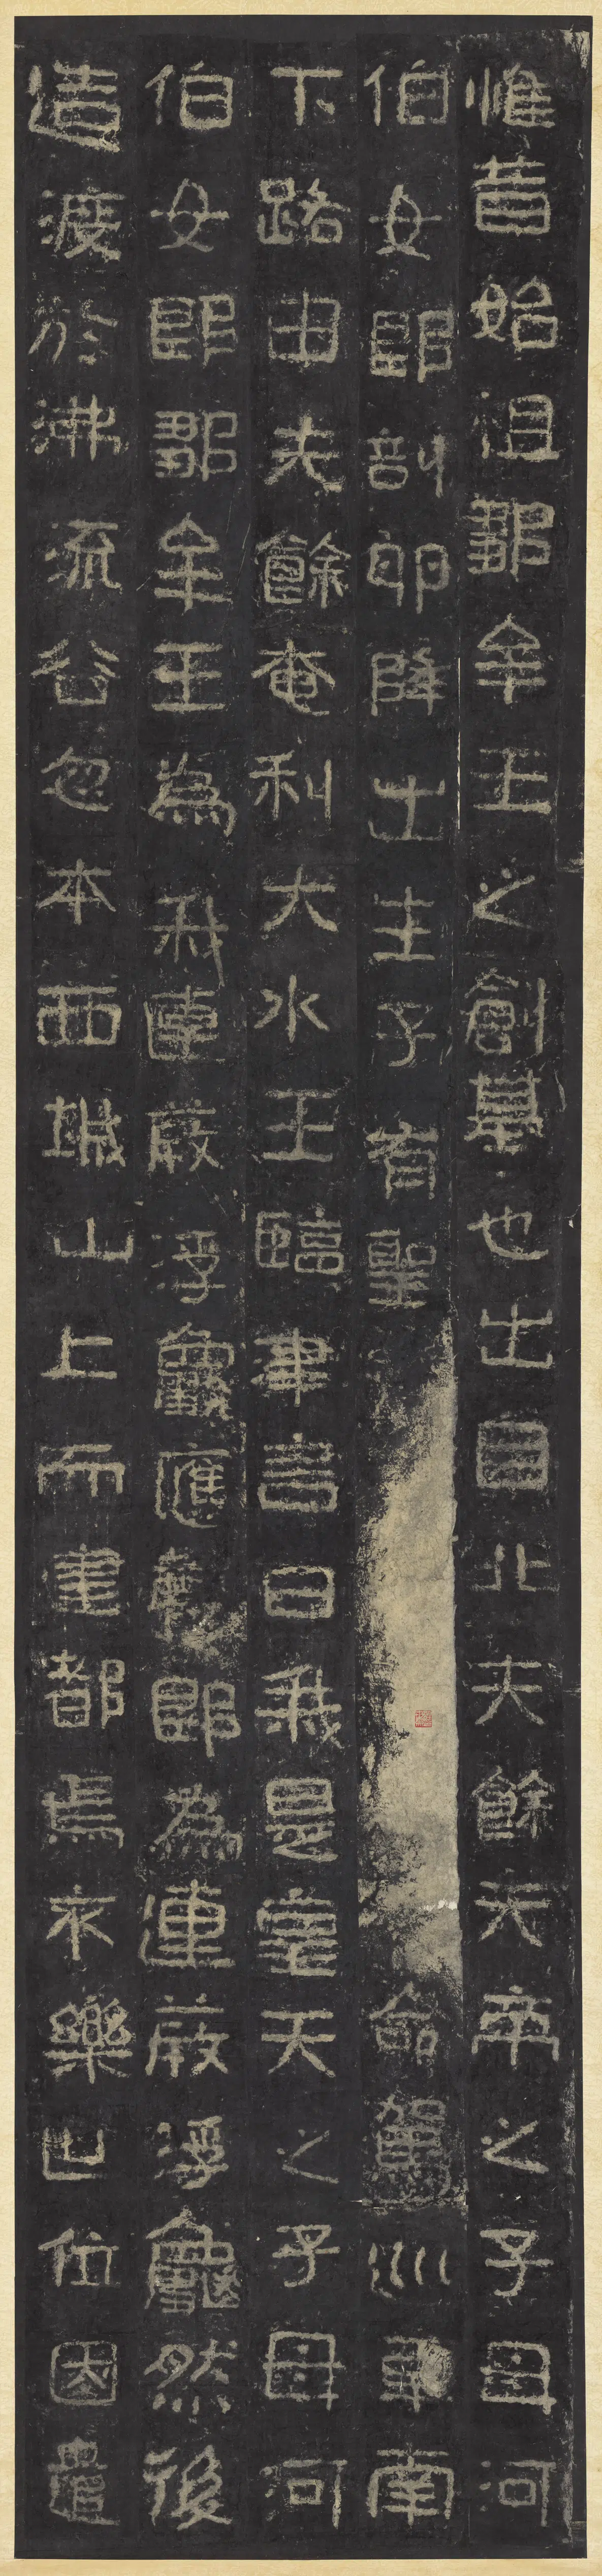 惟昔始祖鄒牟王之創基也出自北夫餘天帝之子母河
伯女郎剖卵降世生子有聖命駕巡車南
下路由夫餘奄利大水王臨津言曰我是皇天之子母河
伯女郎鄒牟王為我連葭浮龜應聲即為連葭浮龜然後
造渡於沸流谷忽本西城山上而建都焉永樂世位因遣